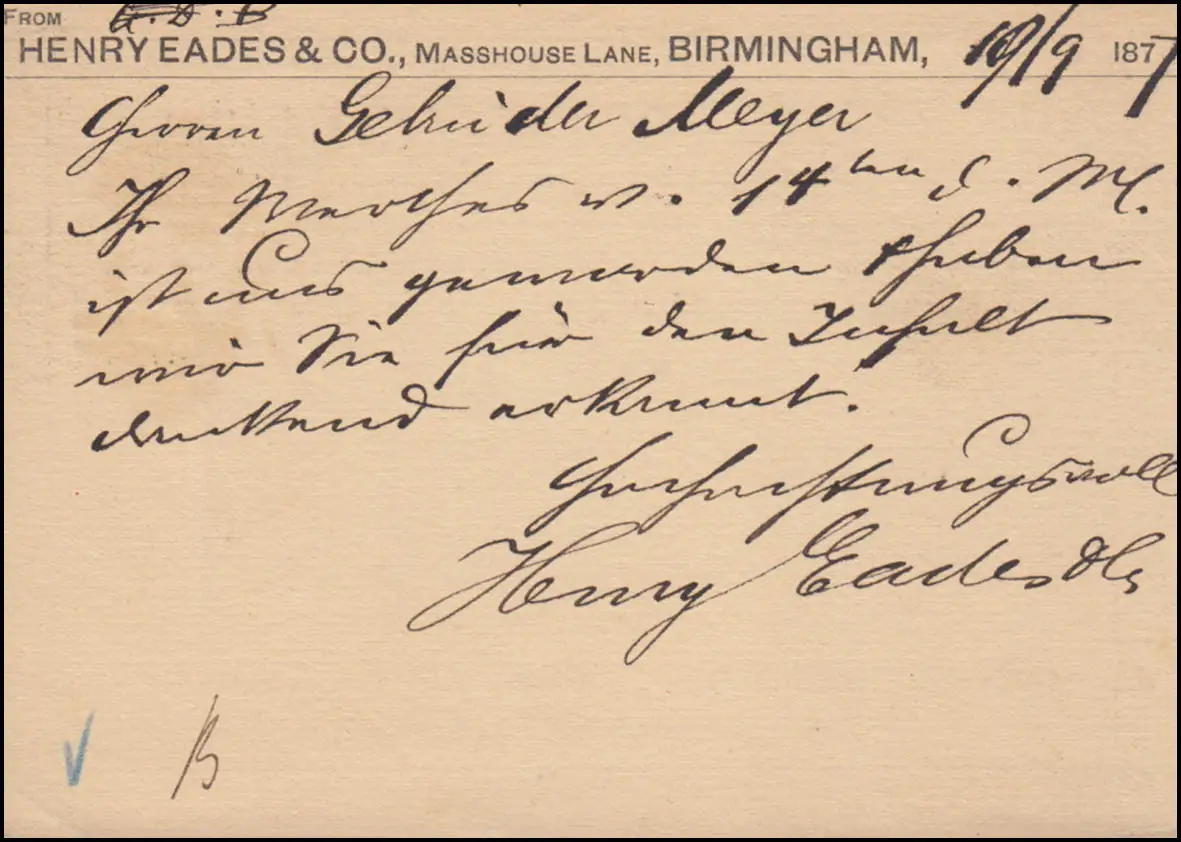 FROM G. D. B
HENRY EADES & CO., MASSHOUSE LANE, BIRMINGHAM, 18/9 1877
Herren Gebrüder Meyer
Ihr Werthes v. 14ten d. M.
ist uns geworden & haben
wir Sie für den Inhalt
dankend erkannt.
Hochachtungsvoll
Henry Eades & Co
B